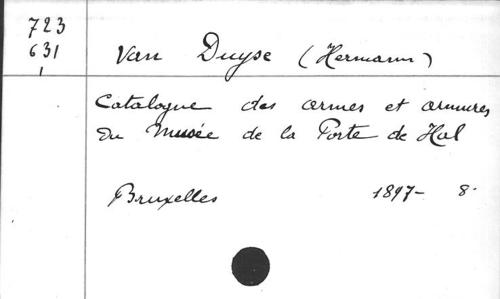 723
631
1
Van Duyse (Hermann)
Catalogue des armes et armures
du Musée de la Porte de Hal
Bruxelles 1897- 8.